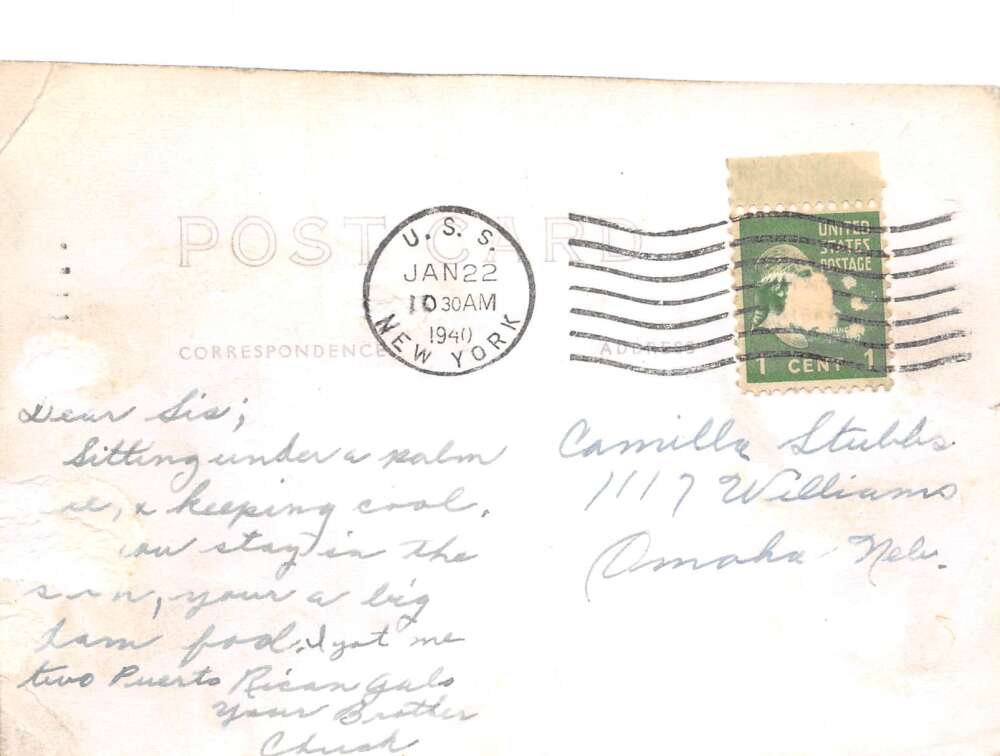 POST CARD
U.S.S.
JAN 22
10 30 AM
1940
NEW YORK
UNITED
STATES
POSTAGE
1 CENT 1
CORRESPONDENCE
ADDRESS
Dear Sis;
Sitting under a palm
, & keeping cool.
stay in the
sun, your a big
fool. I got me
two Puerto Rican gals
Your Brother
Chuck
Camilla Stubbs
1117 Williams
Omaha Neb.